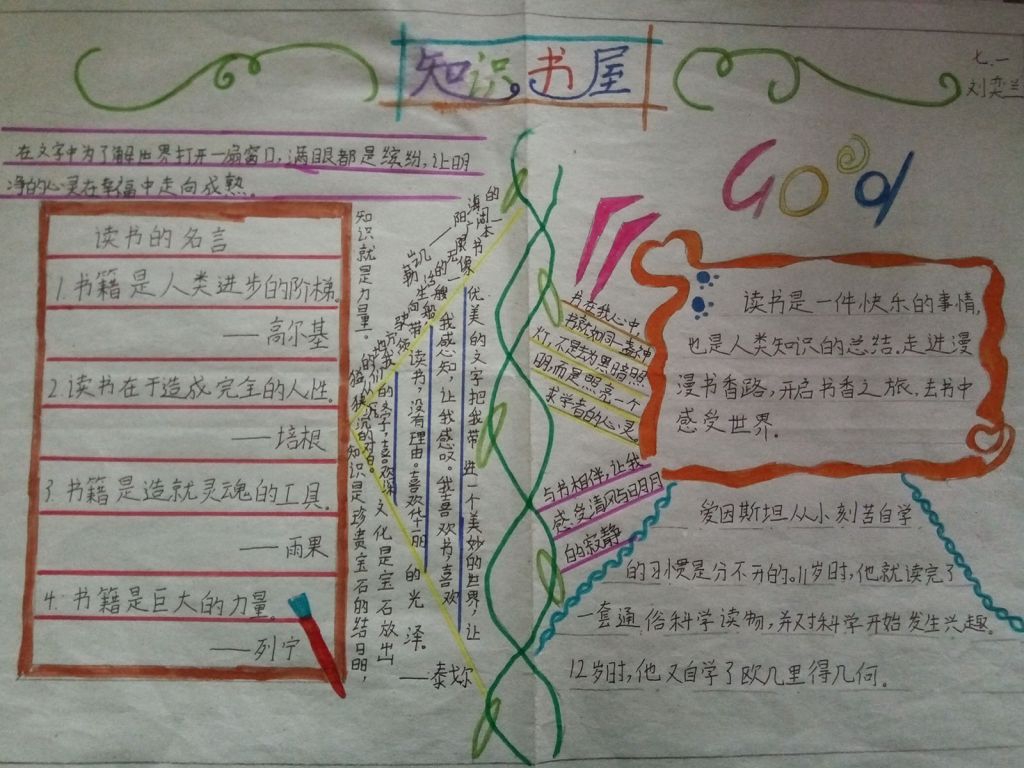 知识书屋
七.一
刘奕兰
在文字中为了解世界打开一扇窗口,满眼都是缤纷,让明
净的心灵在幸福中走向成熟。
Good
读书的名言
1.书籍是人类进步的阶梯。
——高尔基
2.读书在于造成完全的人性。
——培根
3.书籍是造就灵魂的工具。
——雨果
4.书籍是巨大的力量。
——列宁
知识就是力量。
知识是珍贵宝石的结晶,
文化是宝石放出
的光泽。
——泰戈尔
优美的文字把我带进一个美妙的世界,让
我感知,让我感叹。我喜欢书,喜欢
读书,没有理由。喜欢华丽
书在我心中
书就如同一盏神
灯,不是去为黑暗照
明,而是照亮一个
求学者的心灵。
与书相伴,让我
感受清风与明月
的寂静
读书是一件快乐的事情,
也是人类知识的总结.走进漫
漫书香路,开启书香之旅,去书中
感受世界.
爱因斯坦从小刻苦自学
的习惯是分不开的。11岁时,他就读完了
一套通俗科学读物,并对科学开始发生兴趣。
12岁时,他又自学了欧几里得几何。